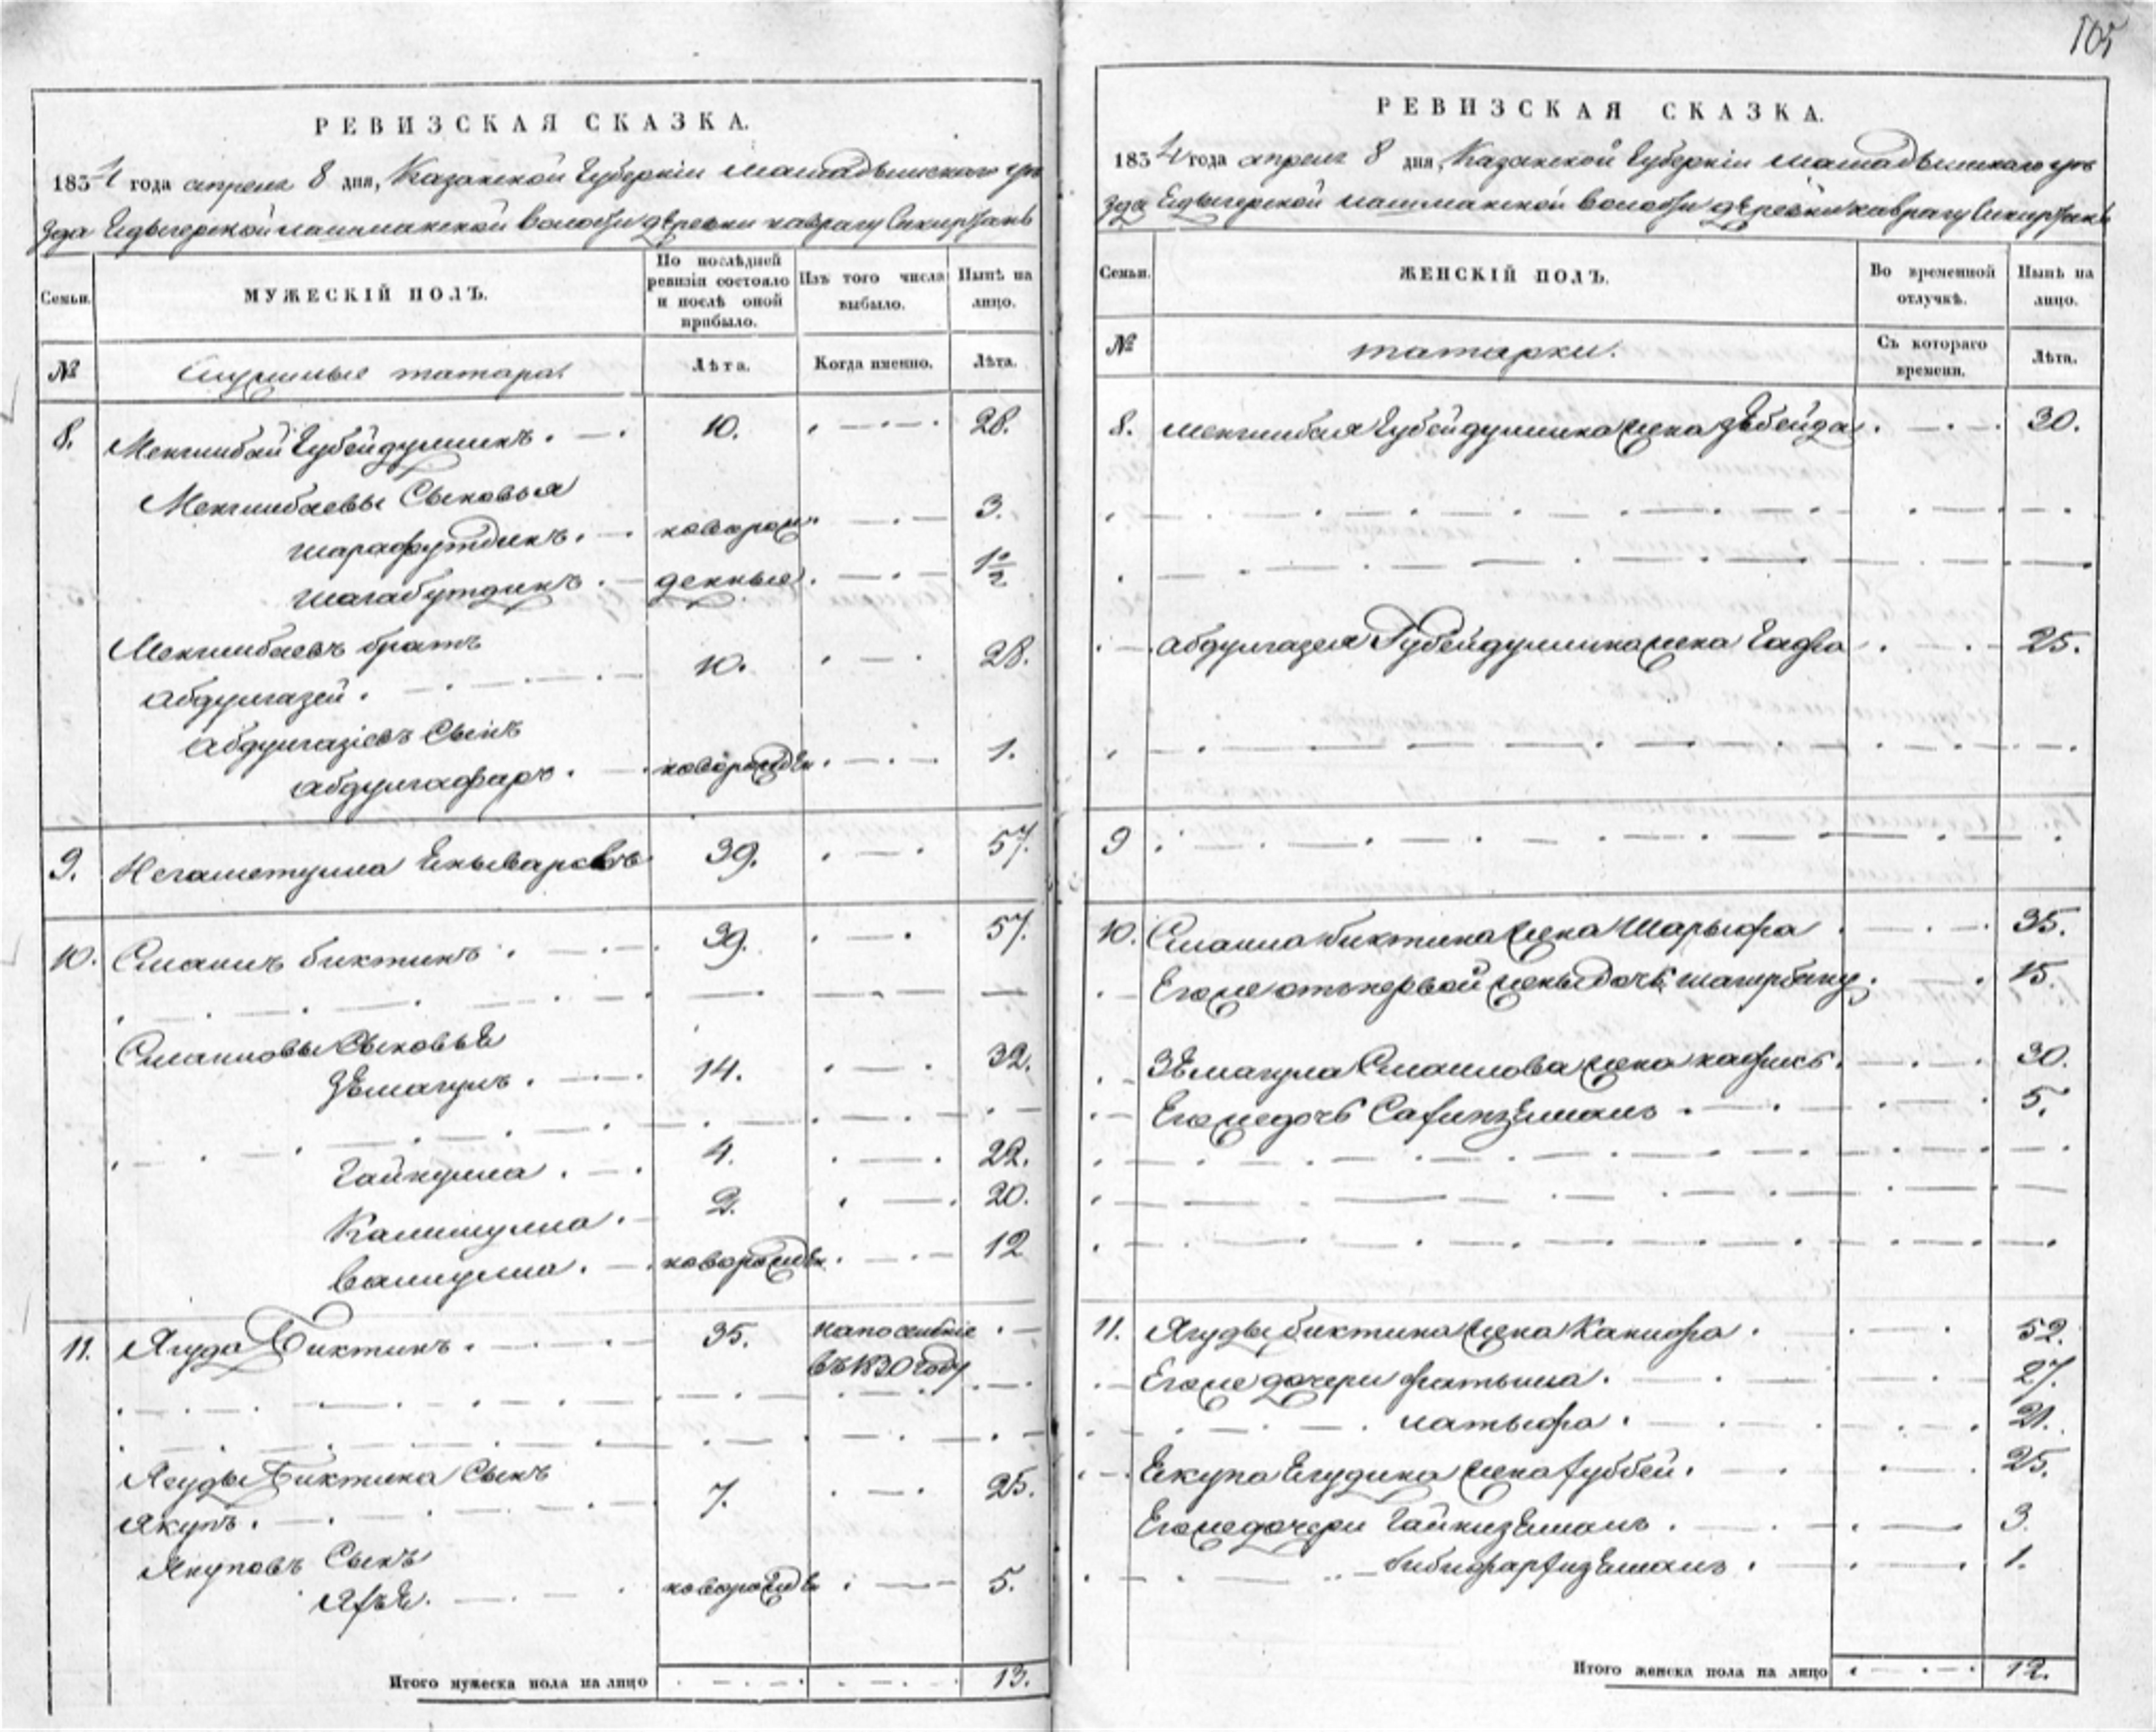 105
РЕВИЗСКАЯ СКАЗКА.
1834 года апреля 8 дня, Казанской Губерніи мамадышскаго уѣ
зда Едыгерской волости деревни
Семьи. МУЖЕСКІЙ ПОЛЪ. По послѣдней ревизіи состояло и послѣ оной прибыло. Изъ того числа выбыло. Нынѣ на лицо.
№ Служилые татара. Лѣта. Когда именно. Лѣта.
8. Менглибай Губейдуллинъ. 10. 28.
Менглибаевы Сыновья
шарафутдинъ. новорож 3.
шагабутдинъ. денные. 1 1/2
Менглибаевъ братъ
абдулгазей. 10. 28.
абдулгазіевъ Сынъ
абдулгафаръ. новорожде 1.
9. Негаметулла 39. 57.
10. Смаилъ биктинъ. 39. 57.
Смаиловы Сыновья
Зѣмагулъ. 14. 32.
Гайнулла. 4. 22.
Калимулла. 2. 20.
Валиулла. новорожде 12
11. Ягуда Биктинъ. 35. на поселеніе
въ 1830 году
Ягуды Биктина Сынъ
Якупъ. 7. 25.
Якуповъ Сынъ
новорожде 5.
Итого мужеска пола на лицо 13.
РЕВИЗСКАЯ СКАЗКА.
1834 года апреля 8 дня, Казанской Губерніи мамадышскаго уѣ
зда Едыгерской волости деревни
Семьи. ЖЕНСКІЙ ПОЛЪ. Во временной отлучкѣ. Нынѣ на лицо.
№ татарки. Съ котораго времени. Лѣта.
8. менглибая Губейдуллина жена зѣбейда. 30.
абдулгазея Губейдуллина жена 25.
9
10. Смаила биктина жена Шарыфа 35.
Егоже отъ первой жены дочь 15.
Зѣмагула Смаилова жена нафиса. 30.
Егоже дочь 5.
11. Ягуды биктина жена Канифа. 52.
Егоже дочери фатыма. 27.
латыфа. 21.
Якупа Ягудина жена 25.
Егоже дочери 3.
1.
Итого женска пола на лицо 12.